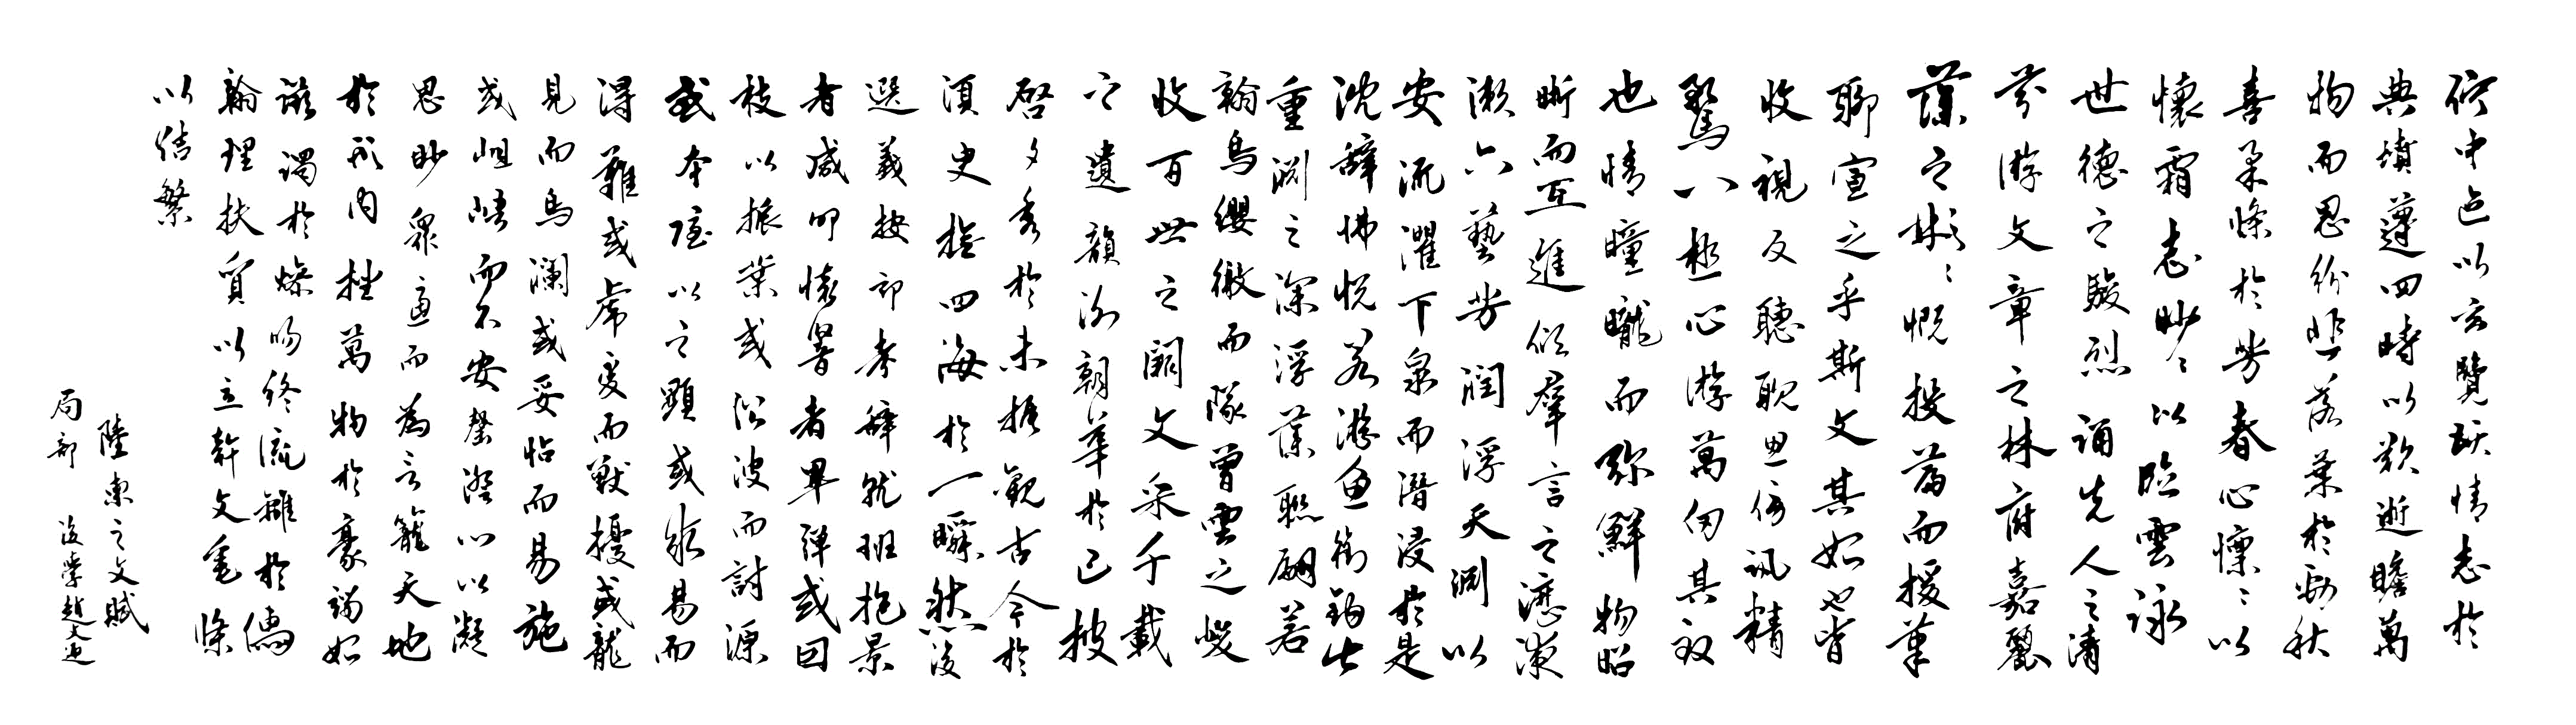 佇中區以玄覽頤情志於
典墳遵四時以歎逝瞻萬
物而思紛悲落葉於勁秋
喜柔條於芳春心懍〻以
懷霜志眇〻以臨雲詠
世德之駿烈誦先人之清
芬游文章之林府嘉麗
藻之彬〻慨投篇而援筆
聊宣之乎斯文其始也皆
收視反聽耽思傍訊精
驚八極心游萬仞其致
也情曈曨而彌鮮物昭
晰而互進傾羣言之瀝液
漱六藝芳潤浮天淵以
安流濯下泉而潛浸於是
沈辭怫悅若游魚銜鉤出
重淵之深浮藻聯翩若
翰鳥纓徼而隊曾雲之峻
收百世之闕文采千載
之遺韻謝朝華於已披
啓夕秀於未振觀古今於
須臾撫四海於一瞬然後
選義按部考辭就班抱景
者咸叩懷響者畢彈或因
枝以振葉或沿波而討源
或本隱以之顯或求易而
得難或虎變而獸擾或龍
見而鳥瀾或妥帖而易施
或岨峿而不安罄澄心以凝
思眇衆慮而為言籠天地
於形內挫萬物於豪端始
躑躅於燥吻終流離於濡
翰理扶質以立幹文垂條
以結繁
陸柬之文賦
局部 後學趙文